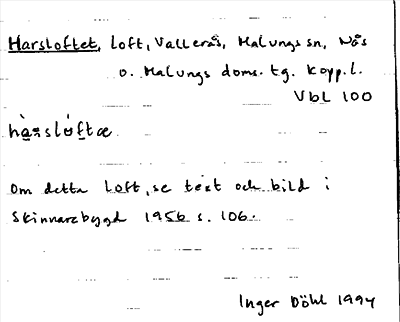 Harsloftet, loft, Vallerås, Malungs sn, Nås
o. Malungs doms. tg. Kopp. l.
VbL 100
hà̱ṟslo̱ftæ
Om detta loft, se text och bild i
Skinnarebygd 1956 s. 106.
Inger Döhl 1994